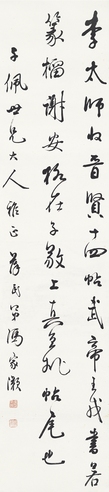 李太师收晋贤十四帖武帝王戎书若
篆籀谢安格在子敬上真宜批帖尾也
子佩世兄大人雅正 弟冯家灏